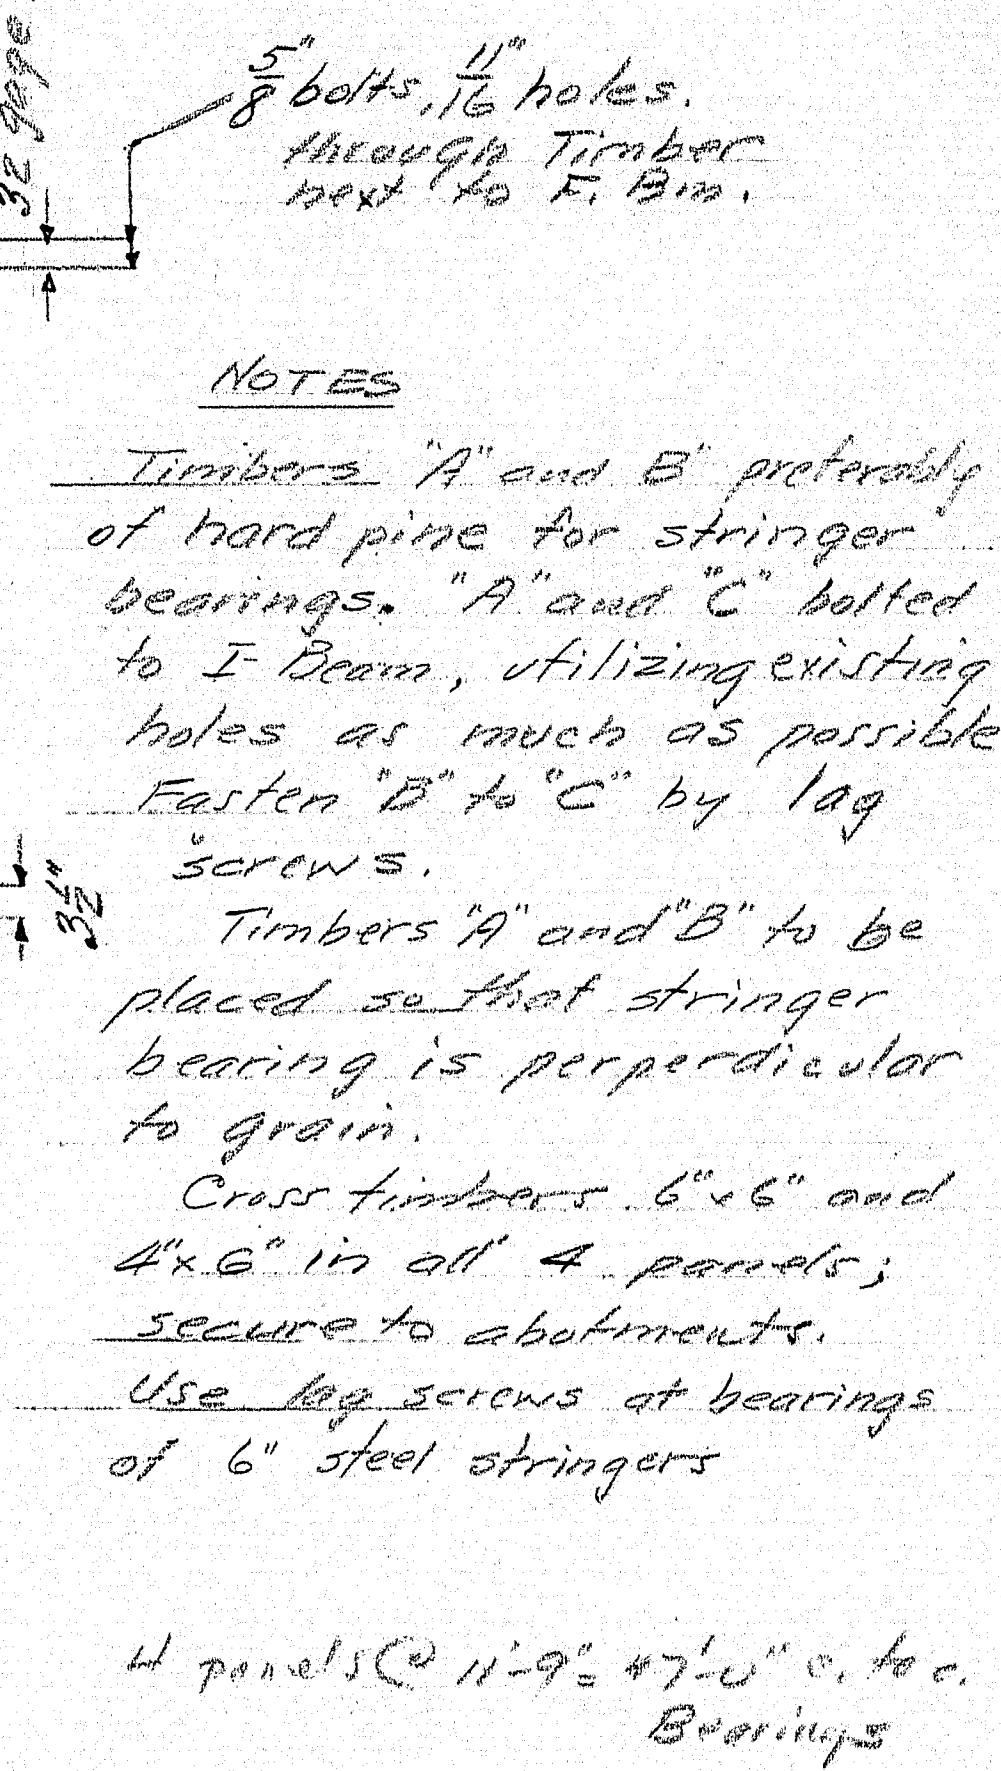 3 1/2" gage
5/8" bolts, 11/16" holes.
through Timber
next to F. Bm.
NOTES
Timbers "A" and B" preferably
of hard pine for stringer
bearings. "A" and "C" bolted
to I-Beam, utilizing existing
holes as much as possible
Fasten "B" to "C" by lag
screws.
3 1/2"
Timbers "A" and "B" to be
placed so that stringer
bearing is perperdicular
to grain.
Cross timbers 6"x6" and
4"x6" in all 4 panels;
secure to abotments.
Use lag screws at bearings
of 6" steel stringers
4 panels @ 11'-9" = 47'-0" c. to c.
Bearings